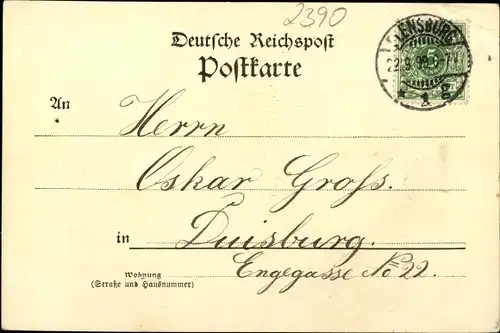 2390
Deutsche Reichspost
Postkarte
FLENSBURG
22.9.98.6-7N
* 1 g
5
An
Herrn
Oskar Groß.
in Duisburg.
Engegasse No 22.
Wohnung
(Straße und Hausnummer)